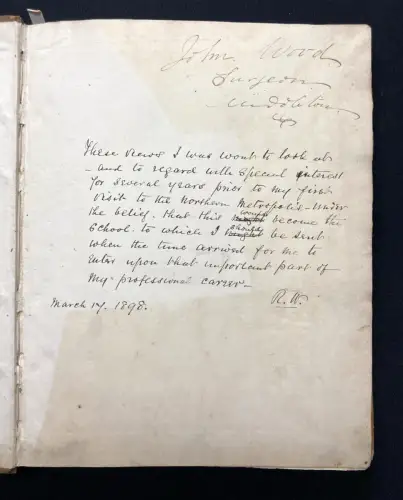 John Wood
Surgeon
Middleton
These views I was wont to look at
- and to regard with special interest
for several years prior to my first
visit to the Northern Metropolis - under
the belief that this would become the
School to which I should be sent
when the time arrived for me to
enter upon that important part of
my professional career -
March 17. 1898.
R. W.